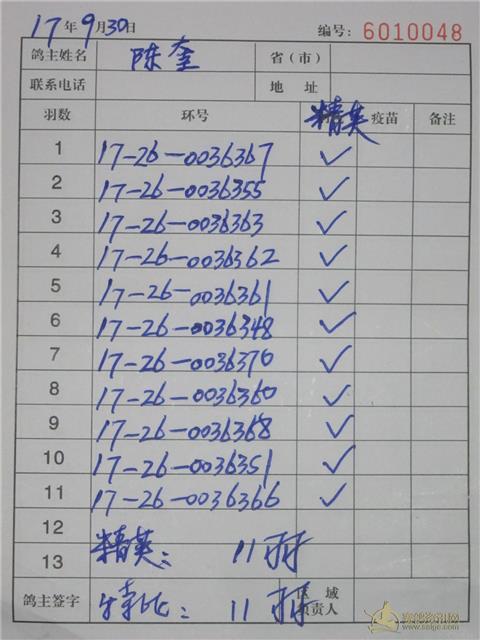 17年9月30日 编号: 6010048
鸽主姓名 陈奎 省（市）
联系电话 地 址
羽数 环号 精英 疫苗 备注
1 17-26-0036367 ✓
2 17-26-0036355 ✓
3 17-26-0036363 ✓
4 17-26-0036362 ✓
5 17-26-0036361 ✓
6 17-26-0036348 ✓
7 17-26-0036370 ✓
8 17-26-0036360 ✓
9 17-26-0036368 ✓
10 17-26-0036351 ✓
11 17-26-0036366 ✓
12
13 精英: 11羽
鸽主签字 特比: 11羽 区 域
负责人
www.saige.com